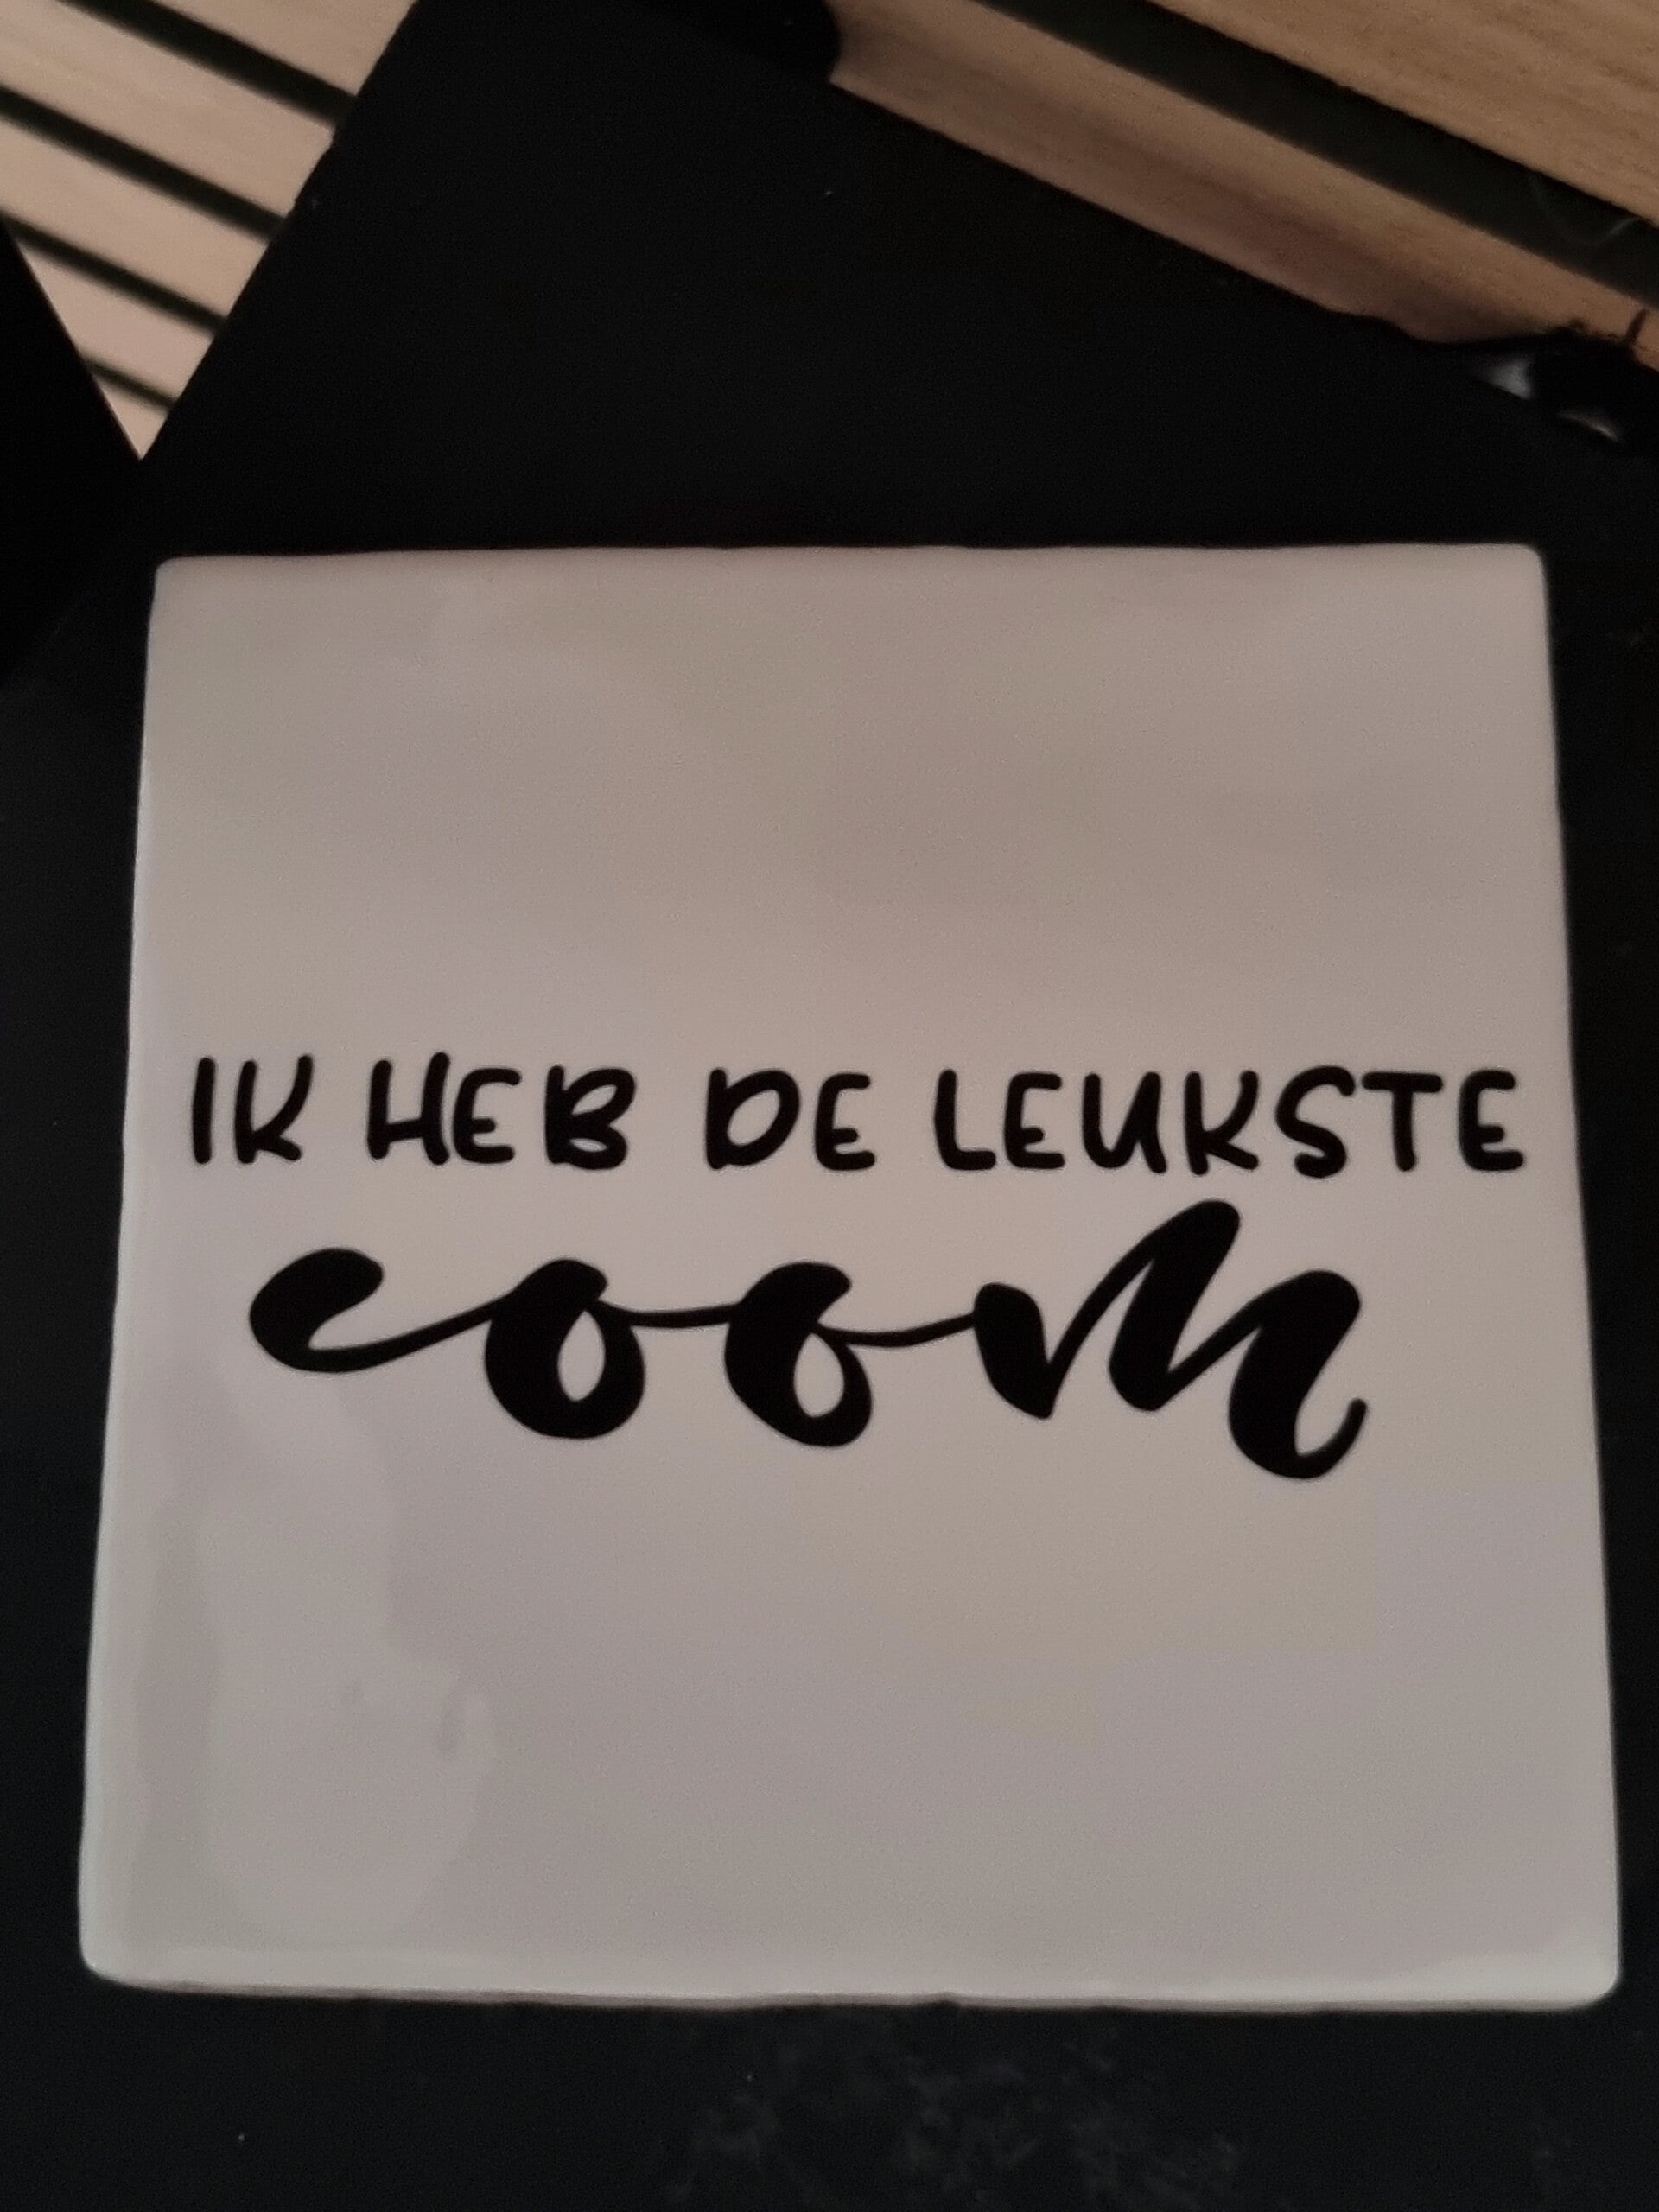 IK HEB DE LEUKSTE
coom